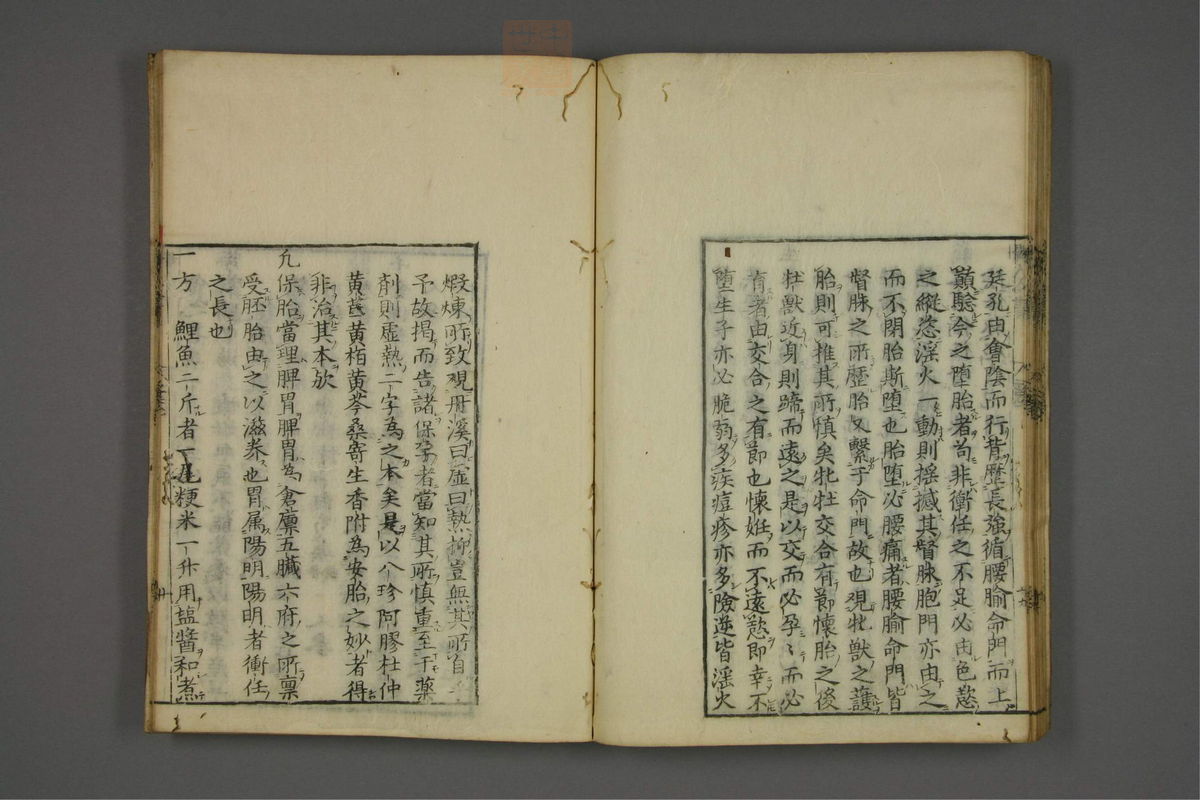 廷孔由會陰而行背歷長強循腰腧命門而上
巔驗今之堕胎者苟非衝任之不足必由色慾
之縱恣淫火一動則揺撼其督脉胞門亦由之
而不閉胎斯堕也胎堕必腰痛者腰腧命門皆
督脉之所歷胎又繫于命門故也覌牝獸之護
胎則可推其所慎矣牝牡交合有節懐胎之後
牡獸近身則蹄而遠之是以交而必孕〻而必
育者由交合之有節也懐妊而不遠慾即幸不
堕生子亦必脆弱多疾痘疹亦多險逆皆淫火
煆煉所致覌丹溪曰虛曰熱抑豈無其所自
予故揭而告諸保孕者當知其所慎重至于薬
剤則虛熱二字為之本矣是以八珍阿膠杜仲
黄芪黄栢黄芩桑寄生香附為安胎之妙者得
非治其本欤
凢保胎當理脾胃脾胃為倉廪五臓六府之所禀
受胚胎由之以滋养也胃属陽明陽明者衝任
之長也
一方 鯉魚二斤者一尾粳米一升用塩醤和煮